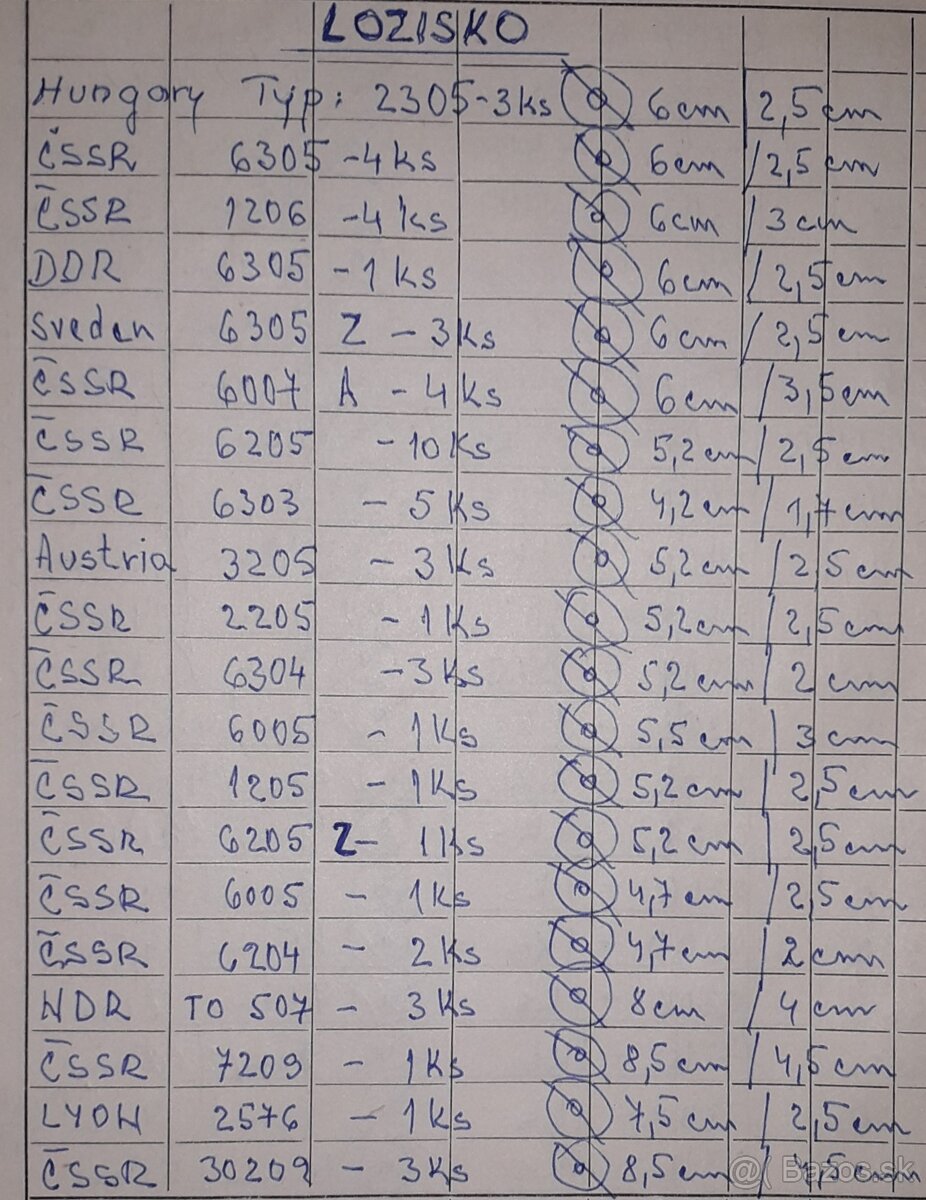 LOZISKO
Hungary Typ: 2305 - 3ks 6cm / 2,5cm
ČSSR 6305 - 4ks 6cm / 2,5cm
ČSSR 1206 - 4ks 6cm / 3cm
DDR 6305 - 1ks 6cm / 2,5cm
Sveden 6305 Z - 3ks 6cm / 2,5cm
ČSSR 6007 A - 4ks 6cm / 3,5cm
ČSSR 6205 - 10ks 5,2cm / 2,5cm
ČSSR 6303 - 5ks 4,2cm / 1,7cm
Austria 3205 - 3ks 5,2cm / 2,5cm
ČSSR 2205 - 1ks 5,2cm / 2,5cm
ČSSR 6304 - 3ks 5,2cm / 2cm
ČSSR 6005 - 1ks 5,5cm / 3cm
ČSSR 1205 - 1ks 5,2cm / 2,5cm
ČSSR 6205 Z - 1ks 5,2cm / 2,5cm
ČSSR 6005 - 1ks 4,7cm / 2,5cm
ČSSR 6204 - 2ks 4,7cm / 2cm
NDR TO 507 - 3ks 8cm / 4cm
ČSSR 7209 - 1ks 8,5cm / 4,5cm
LYON 2576 - 1ks 7,5cm / 2,5cm
ČSSR 30209 - 3ks 8,5cm / 4,5cm
Bazos.sk